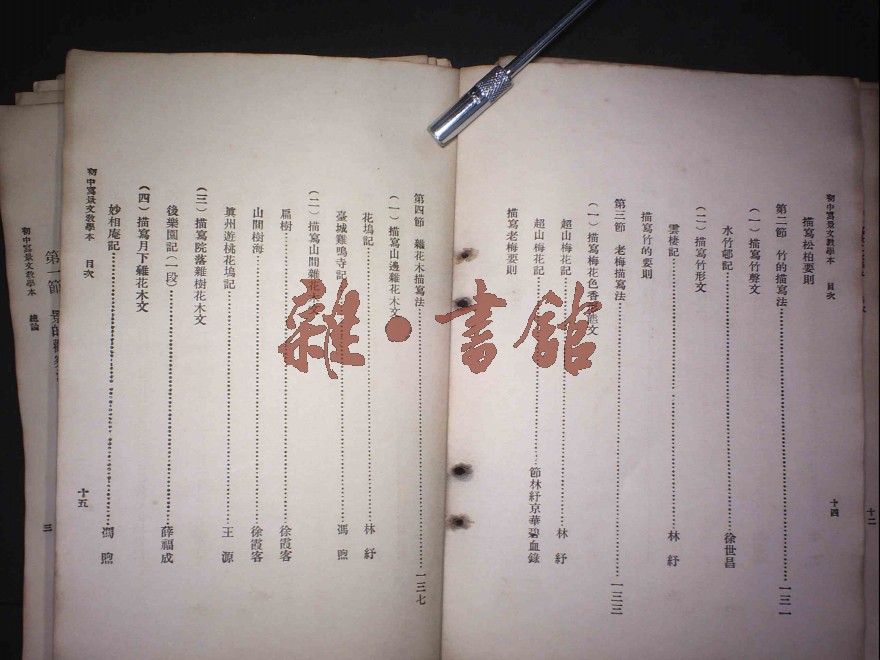 初中寫景文教學本　目次
描寫松柏要則
第二節　竹的描寫法……一三一
(一)描寫竹聲文
水竹邨記……徐世昌
(二)描寫竹形文
雲棲記……林紓
描寫竹的要則
第三節　老梅描寫法……一三三
(一)描寫梅花色香形態文
超山梅花記……林紓
超山梅花記……節林紓京華碧血錄
描寫老梅要則
十四
第四節　雜花木描寫法……一三七
(一)描寫山邊雜花木文
花塢記……林紓
臺城雞鳴寺記……馮煦
(二)描寫山間雜花木文
扁樹……徐霞客
山間樹海……徐霞客
眞州遊桃花塢記……王源
(三)描寫院落雜樹花木文
後樂園記(一段)……薛福成
(四)描寫月下雜花木文
妙相庵記……馮煦
初中寫景文教學本　目次
十五
初中寫景文教學本　總論
第一節
三
十二
雜·書館